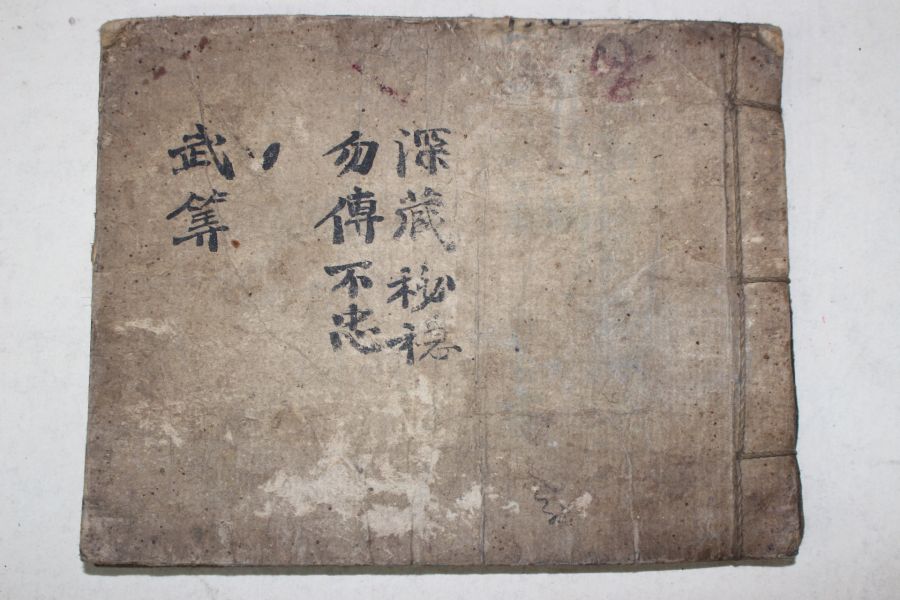 深藏秘穩
勿傳不忠
武筭